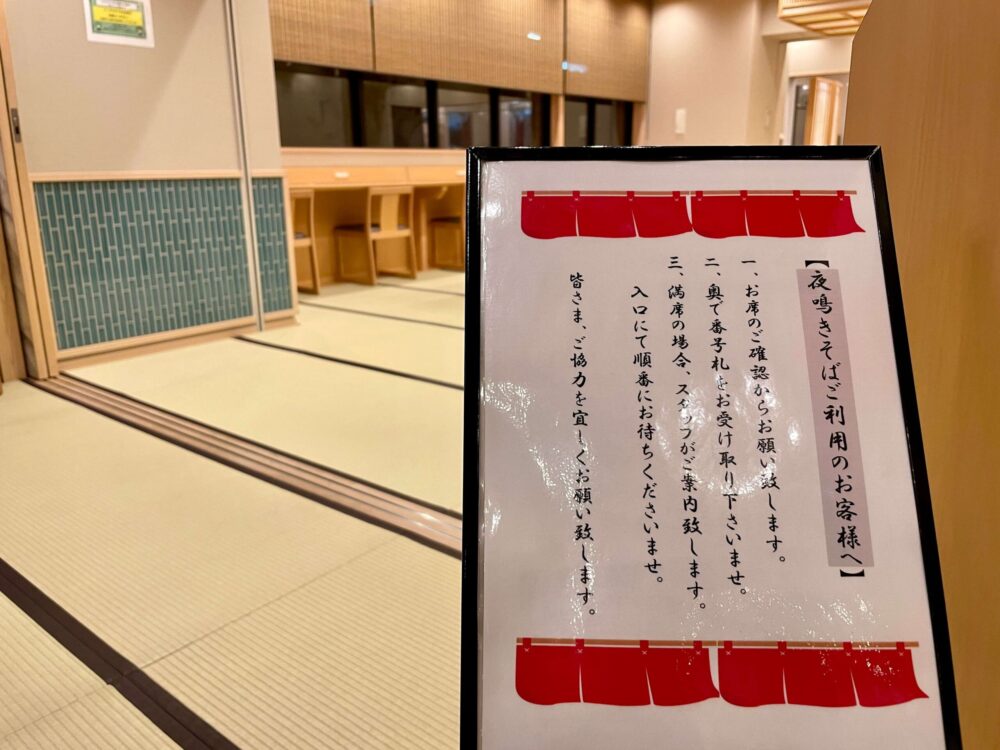 【夜鳴きそばご利用のお客様へ】
一、お席のご確認からお願い致します。
二、奥で番号札をお受け取り下さいませ。
三、満席の場合、スタッフがご案内致します。
入口にて順番にお待ちくださいませ。
皆さま、ご協力を宜しくお願い致します。